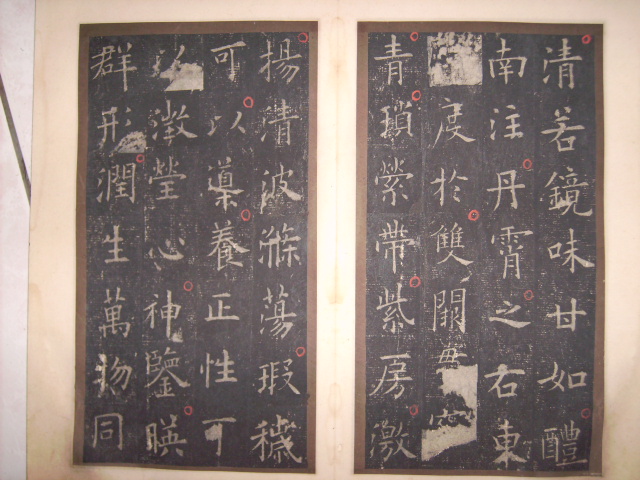 清若鏡味甘如醴
南注丹霄之右東
度於雙闕
青瑣縈帶紫房激
揚清波滌蕩瑕穢
可以導養正性可
以澂瑩心神鑒暎
群形潤生萬物同